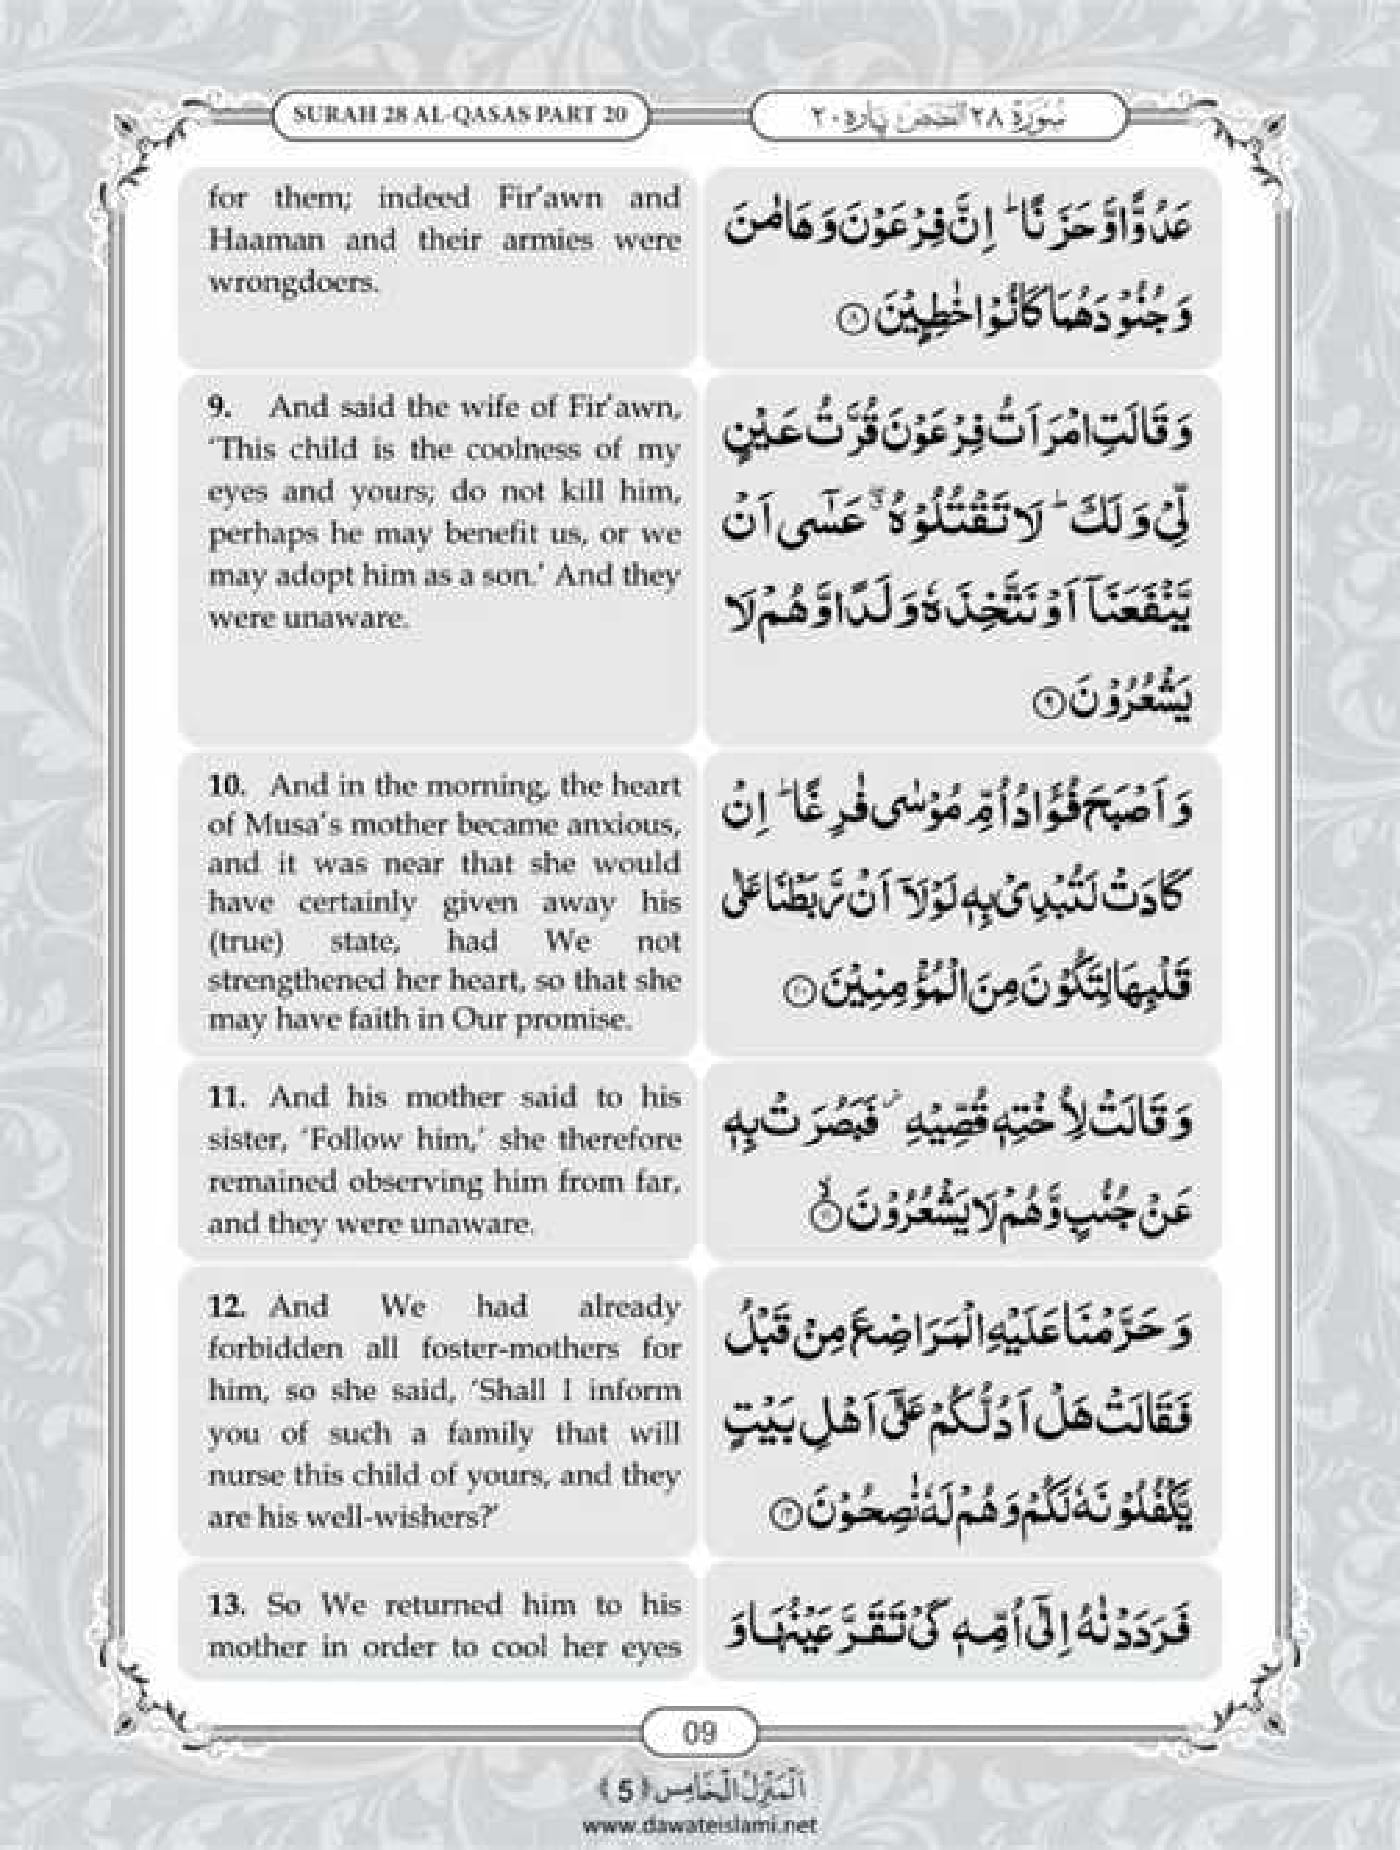 SURAH 28 AL-QASAS PART 20
سُوْرَةُ ٢٨ القَصَص پاره ٢٠
for them; indeed Fir'awn and
Haaman and their armies were
wrongdoers.
عَدُوًّا وَّ حَزَنًا ؕ اِنَّ فِرْعَوْنَ وَ هَامٰنَ
وَ جُنُوْدَهُمَا كَانُوْا خٰطِـِٕیْنَ ﴿٨﴾
9. And said the wife of Fir'awn,
'This child is the coolness of my
eyes and yours; do not kill him,
perhaps he may benefit us, or we
may adopt him as a son.' And they
were unaware.
وَ قَالَتِ امْرَاَتُ فِرْعَوْنَ قُرَّتُ عَیْنٍ
لِّیْ وَ لَكَ ؕ لَا تَقْتُلُوْهُ ۖۗ عَسٰۤی اَنْ
یَّنْفَعَنَاۤ اَوْ نَتَّخِذَهٗ وَلَدًا وَّ هُمْ لَا
یَشْعُرُوْنَ ﴿٩﴾
10. And in the morning, the heart
of Musa's mother became anxious,
and it was near that she would
have certainly given away his
(true) state, had We not
strengthened her heart, so that she
may have faith in Our promise.
وَ اَصْبَحَ فُؤَادُ اُمِّ مُوْسٰی فٰرِغًا ؕ اِنْ
كَادَتْ لَتُبْدِیْ بِهٖ لَوْ لَاۤ اَنْ رَّبَطْنَا عَلٰی
قَلْبِهَا لِتَكُوْنَ مِنَ الْمُؤْمِنِیْنَ ﴿١٠﴾
11. And his mother said to his
sister, 'Follow him,' she therefore
remained observing him from far,
and they were unaware.
وَ قَالَتْ لِاُخْتِهٖ قُصِّیْهِ ؗ فَبَصُرَتْ بِهٖ
عَنْ جُنُبٍ وَّ هُمْ لَا یَشْعُرُوْنَ ﴿١١﴾ۙ
12. And We had already
forbidden all foster-mothers for
him, so she said, 'Shall I inform
you of such a family that will
nurse this child of yours, and they
are his well-wishers?'
وَ حَرَّمْنَا عَلَیْهِ الْمَرَاضِعَ مِنْ قَبْلُ
فَقَالَتْ هَلْ اَدُلُّكُمْ عَلٰۤی اَهْلِ بَیْتٍ
یَّكْفُلُوْنَهٗ لَكُمْ وَ هُمْ لَهٗ نٰصِحُوْنَ ﴿١٢﴾
13. So We returned him to his
mother in order to cool her eyes
فَرَدَدْنٰهُ اِلٰۤی اُمِّهٖ كَیْ تَقَرَّ عَیْنُهَا وَ
09
اَلْمَنْزِلُ الْخَامِس (5)
www.dawateislami.net